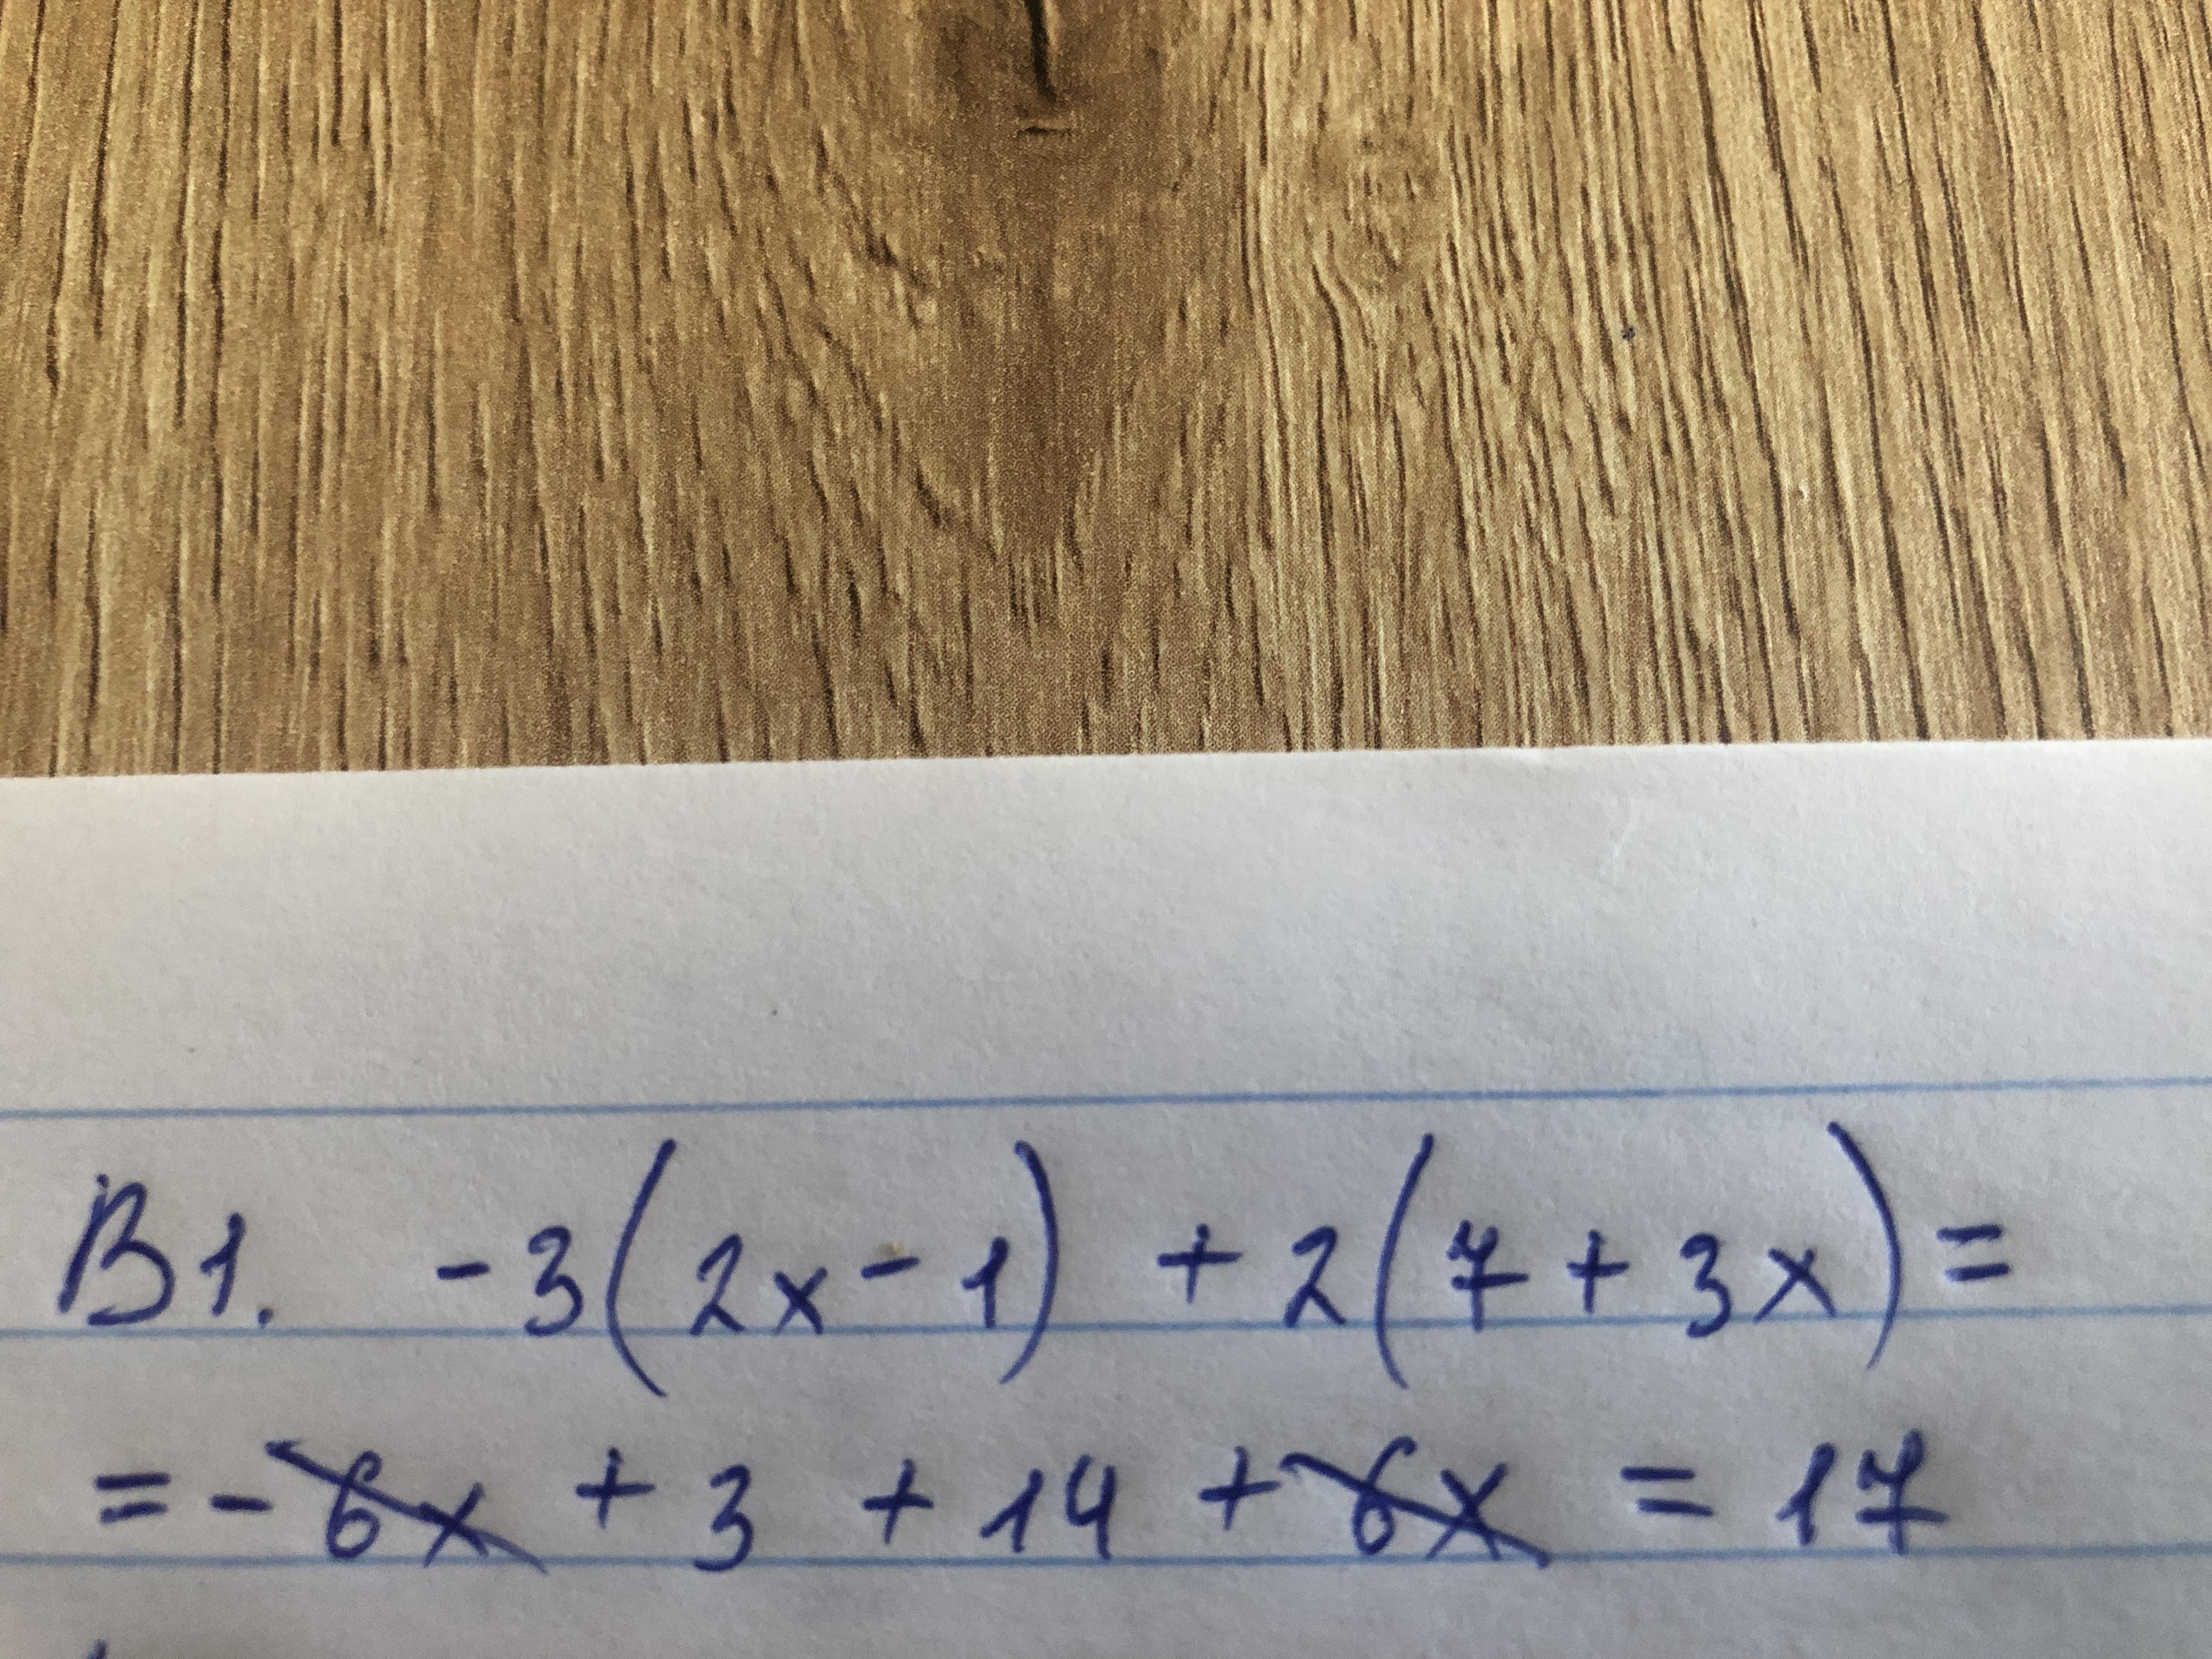 B1. -3(2x-1) +2(7+3x)=
=-6x + 3 + 14 +6x = 17